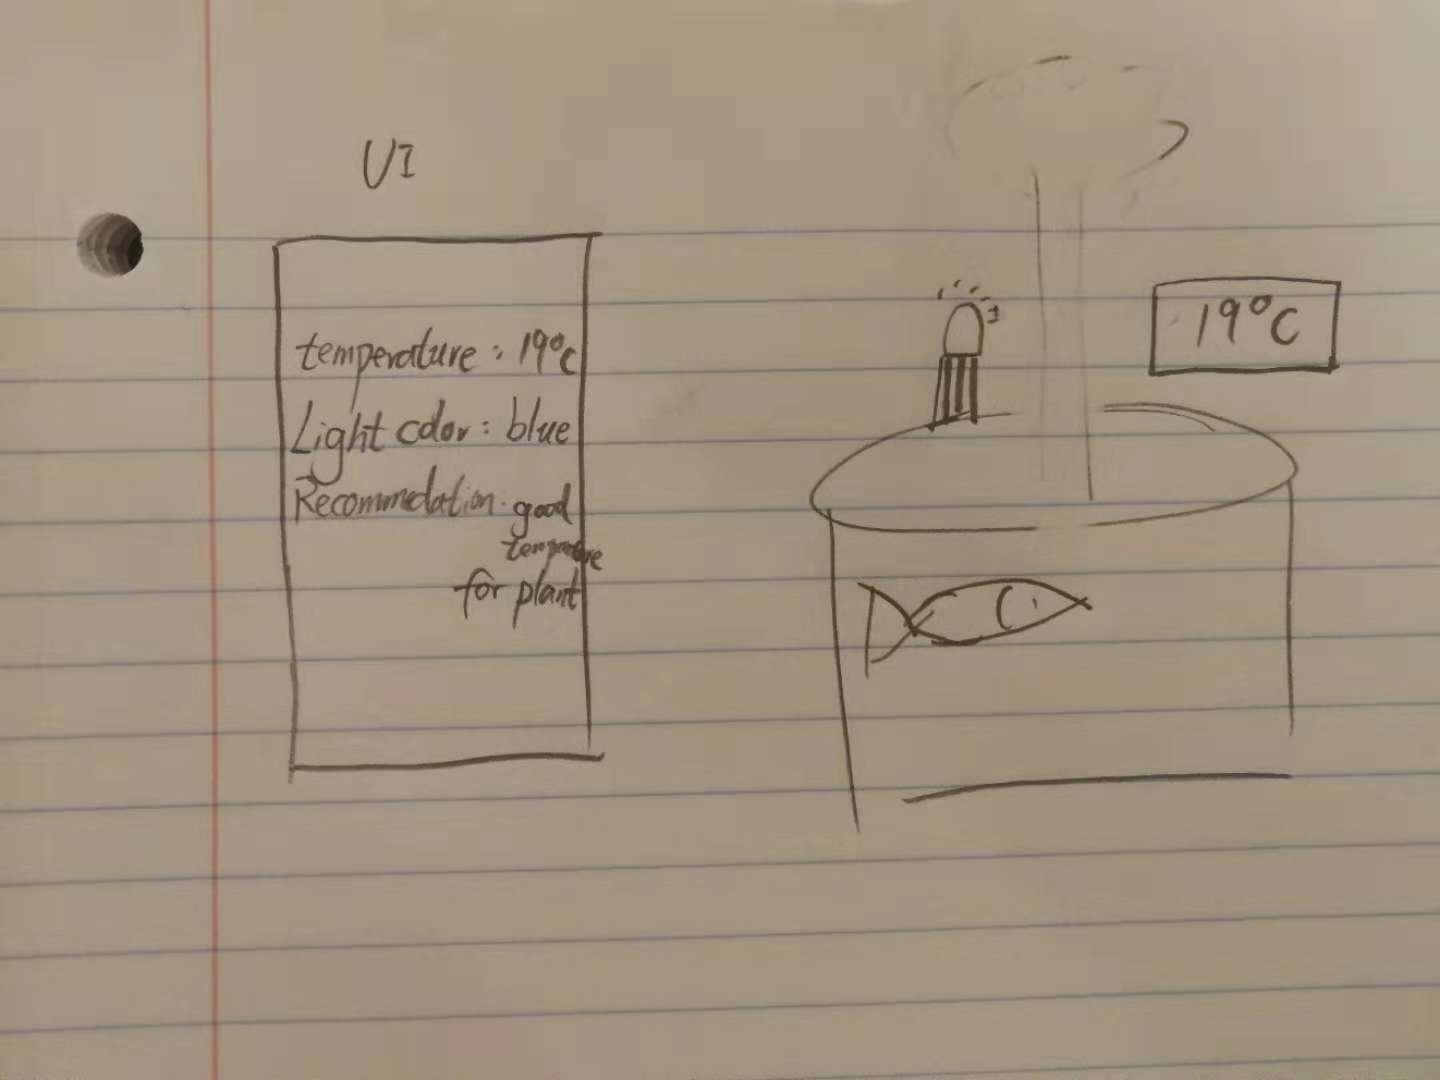 UI
temperature: 19°C
Light color: blue
Recommedation: good
temperature
for plant
19°C